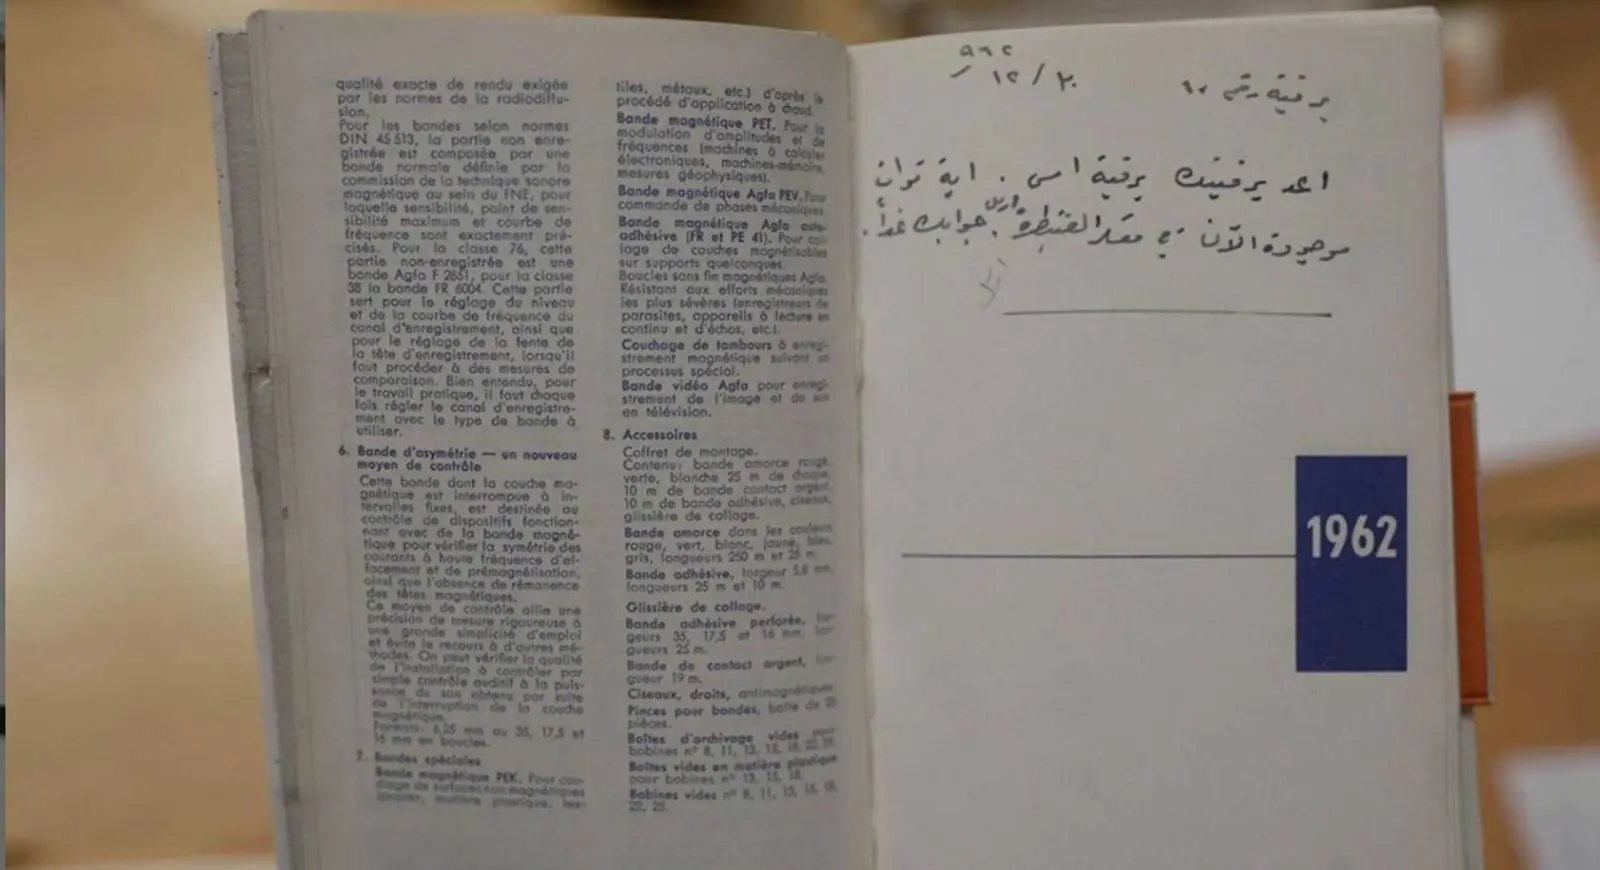 qualité exacte de rendu exigée
par les normes de la radiodiffu-
sion.
Pour les bandes selon normes
DIN 45 513, la partie non enre-
gistrée est composée par une
bande normale définie par la
commission de la technique sonore
magnétique au sein du FNE, pour
laquelle sensibilité, point de sen-
sibilité maximum et courbe de
fréquence sont exactement pré-
cisés. Pour la classe 76, cette
partie non-enregistrée est une
bande Agfa F 2651, pour la classe
38 la bande FR 6004. Cette partie
sert pour le réglage du niveau
et de la courbe de fréquence du
canal d'enregistrement, ainsi que
pour le réglage de la fente de
la tête d'enregistrement, lorsqu'il
faut procéder à des mesures de
comparaison. Bien entendu, pour
le travail pratique, il faut chaque
fois régler le canal d'enregistre-
ment avec le type de bande à
utiliser.
6. Bande d'asymétrie — un nouveau
moyen de contrôle
Cette bande dont la couche ma-
gnétique est interrompue à in-
tervalles fixes, est destinée au
contrôle de dispositifs fonction-
nant avec de la bande magné-
tique pour vérifier la symétrie des
courants à haute fréquence d'ef-
facement et de prémagnétisation,
ainsi que l'absence de rémanence
des têtes magnétiques.
Ce moyen de contrôle allie une
précision de mesure rigoureuse à
une grande simplicité d'emploi
et évite le recours à d'autres mé-
thodes. On peut vérifier la qualité
de l'installation à contrôler par
simple contrôle auditif à la puis-
sance du son obtenu par suite
de l'interruption de la couche
magnétique.
Formats: 6,25 mm ou 35, 17,5 et
16 mm en boucles.
7. Bandes spéciales
Bande magnétique PEK. Pour cou-
chage de surfaces non magnétiques
(papier, matière plastique, tex-
tiles, métaux, etc.) d'après le
procédé d'application à chaud.
Bande magnétique PET. Pour la
modulation d'amplitudes et de
fréquences (machines à calculer
électroniques, machines-mémoire,
mesures géophysiques).
Bande magnétique Agfa PEV. Pour
commande de phases mécaniques.
Bande magnétique Agfa auto-
adhésive (FR et PE 41). Pour col-
lage de couches magnétisables
sur supports quelconques.
Boucles sans fin magnétiques Agfa.
Résistant aux efforts mécaniques
les plus sévères (enregistreurs de
parasites, appareils à lecture en
continu et d'échos, etc.).
Couchage de tambours à enregi-
strement magnétique suivant un
processus spécial.
Bande vidéo Agfa pour enregi-
strement de l'image et du son
en télévision.
8. Accessoires
Coffret de montage.
Contenu: bande amorce rouge,
verte, blanche 25 m de chaque,
10 m de bande contact argent,
10 m de bande adhésive, ciseaux,
glissière de collage.
Bande amorce dans les couleurs
rouge, vert, blanc, jaune, bleu,
gris, longueurs 250 m et 25 m.
Bande adhésive, largeur 5,8 mm,
longueurs 25 m et 10 m.
Glissière de collage.
Bande adhésive perforée, lar-
geurs 35, 17,5 et 16 mm, lon-
gueurs 25 m.
Bande de contact argent, lon-
gueur 19 m.
Ciseaux, droits, antimagnétiques.
Pinces pour bandes, boîte de
pièces.
Boîtes d'archivage vides pour
bobines nº 8, 11, 13, 15, 18, 22, 25.
Boîtes vides en matière plastique
pour bobines nº 13, 15, 18.
Bobines vides nº 8, 11, 13, 15, 18,
22, 25.
٩٦٢
برقية رقم ٦٠ ٣٠ / ١٢ /
اعد برقيتك برقية امس. اية قوات
موجودة الآن في معسكر القنيطرة. ارسل جوابك غداً.
1962